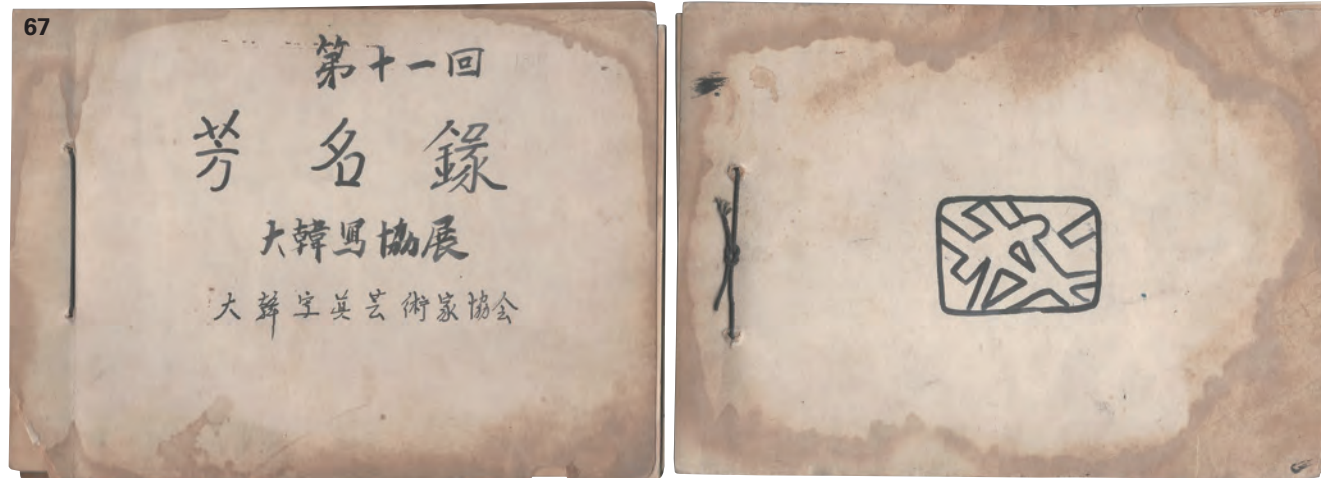 67
第十一回
芳名錄
大韓寫協展
大韓写真芸術家協会